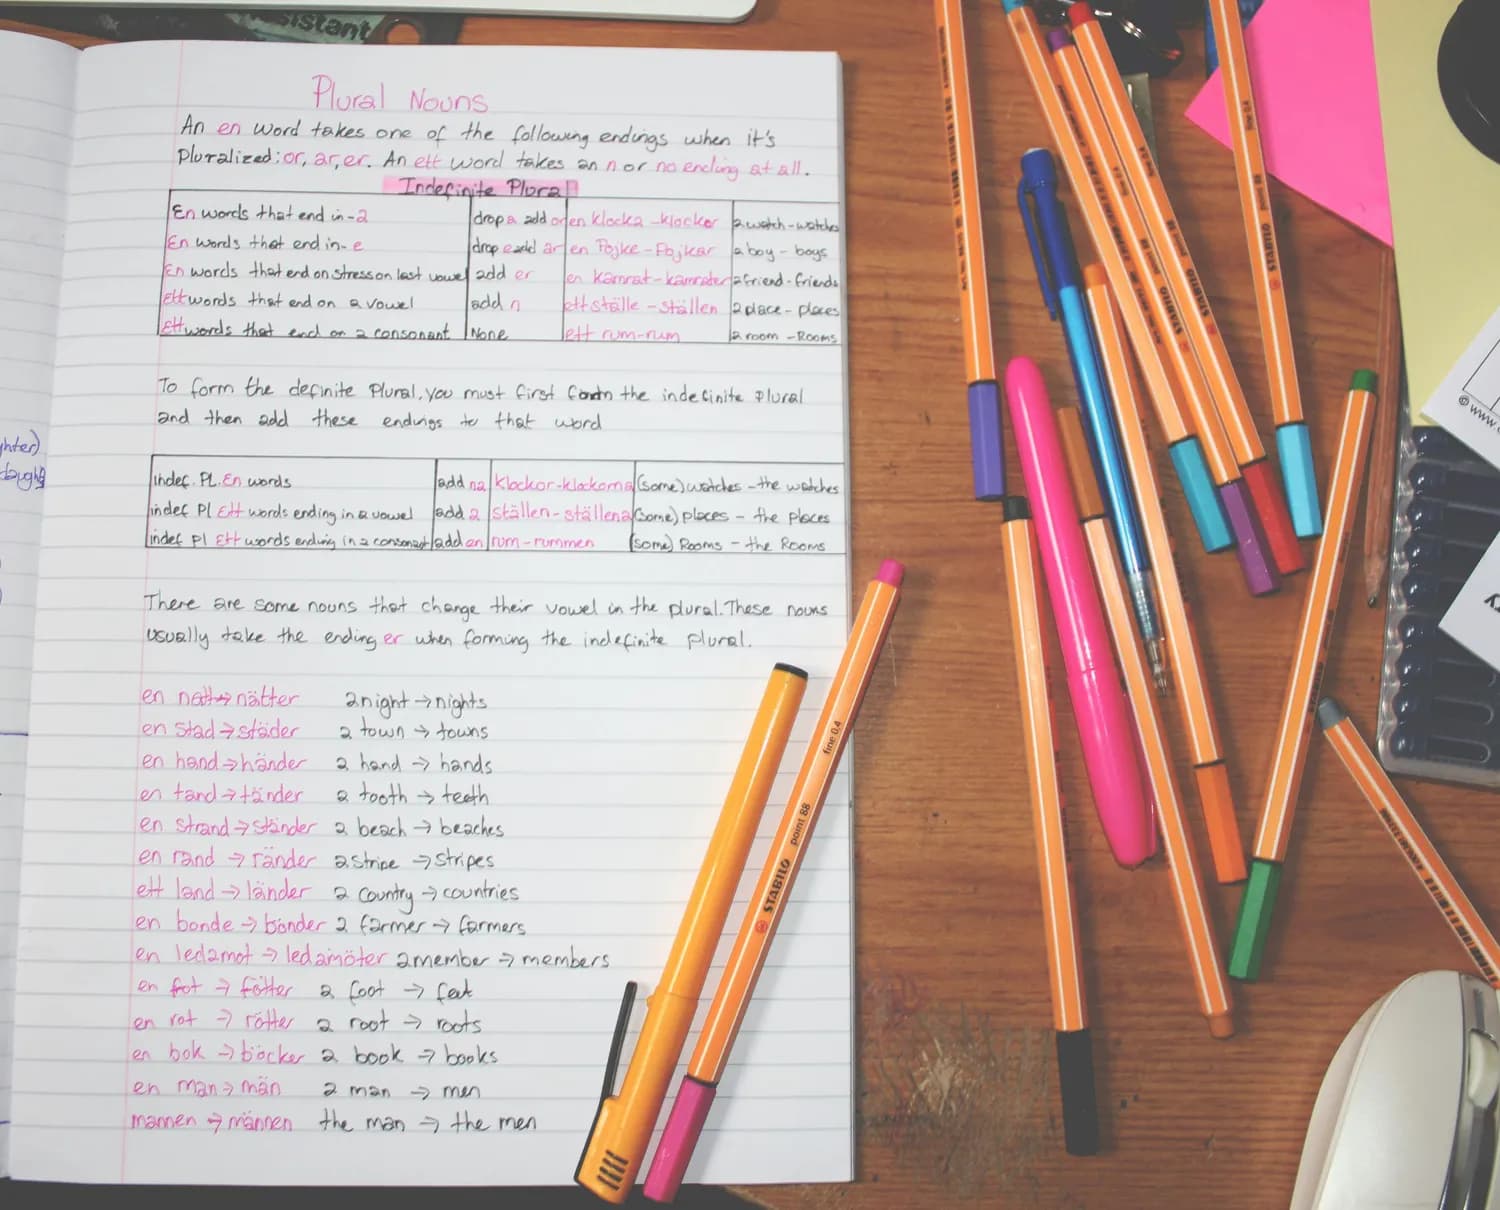 sistant
Plural Nouns
An en word takes one of the following endings when it's
pluralized: or, ar, er. An ett word takes an n or no ending at all.
Indefinite Plural
En words that end in -a drop a add or en klocka - klockor a watch - watches
En words that end in - e drop e add ar en Pojke - Pojkar a boy - boys
En words that end on stress on last vowel add er en kamrat - kamrater a friend - friends
Ett words that end on a vowel add n ett ställe - ställen a place - places
Ett words that end on a consonant None ett rum - rum a room - Rooms
To form the definite Plural, you must first form the indefinite plural
and then add these endings to that word
indef. PL. En words add na klockor - klockorna (some) watches - the watches
indef Pl Ett words ending in a vowel add a ställen - ställena (some) places - the places
indef pl Ett words ending in a consonant add en rum - rummen (some) Rooms - the Rooms
There are some nouns that change their vowel in the plural. These nouns
usually take the ending er when forming the indefinite plural.
en natt → nätter a night → nights
en stad → städer a town → towns
en hand → händer a hand → hands
en tand → tänder a tooth → teeth
en strand → ständer a beach → beaches
en rand → ränder a stripe → stripes
ett land → länder a country → countries
en bonde → bönder a farmer → farmers
en ledamot → ledamöter a member → members
en fot → fötter a foot → feet
en rot → rötter a root → roots
en bok → böcker a book → books
en man → män a man → men
mannen → männen the man → the men
STABILO point 88 fine 0.4
STABILO
STABILO
STABILO
fine 0.4
© www.